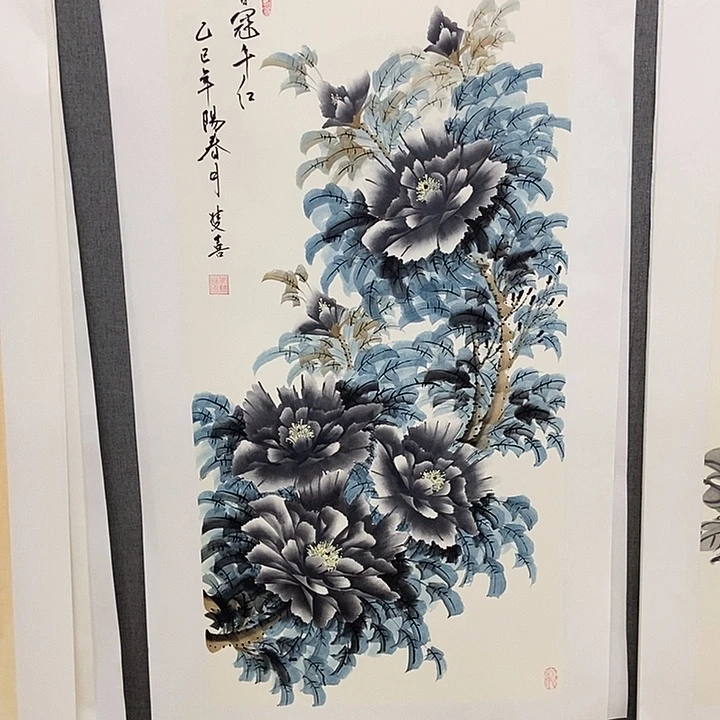 冠千红
乙巳年陽春月
喜